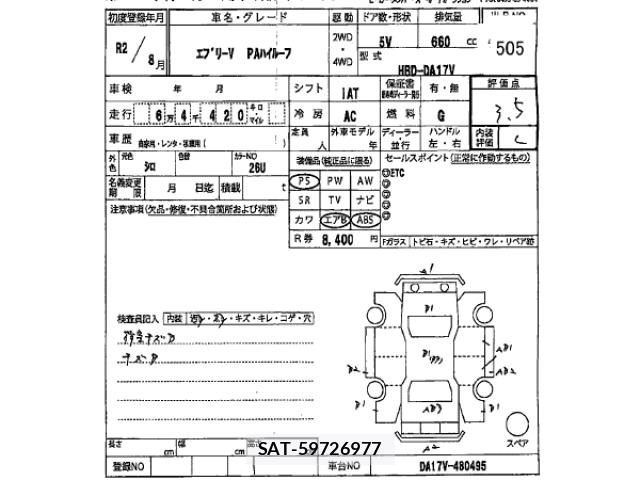 初度登録年月 車名・グレード 駆動 ドア数・形状 排気量
R2 / 8月 エブリーV PAハイルーフ 2WD・4WD 5V 660 cc 505
型式 HBD-DA17V
車検 年 月 シフト IAT 保証書 有・無 評価点 3.5
走行 6万4千420 キロ マイル 冷房 AC 燃料 G
車歴 自家用・レンタ・事業用( ) 定員 人 外車モデル 年 ディーラー・並行 ハンドル 左・右 内装評価 C
外色 元色 シロ 色替 カラーNO 26U 装備品(純正品に限る) セールスポイント(正常に作動するもの)
名義変更期限 月 日迄 積載 t PS PW AW ◎ETC
SR TV ナビ ◎
注意事項(欠品・修復・不具合箇所および状態) カワ エアB ABS ◎
R券 8,400 円 Fガラス トビ石・キズ・ヒビ・ワレ・リペア跡
A1
B1
検査員記入 内装 キズ・キレ・コゲ・穴
キズB
B2 B1 AB1
AB2
B1 AB3 B1
A2 スペア
長さ cm 幅 cm 高さ
SAT-59726977
登録NO 車台NO DA17V-480495